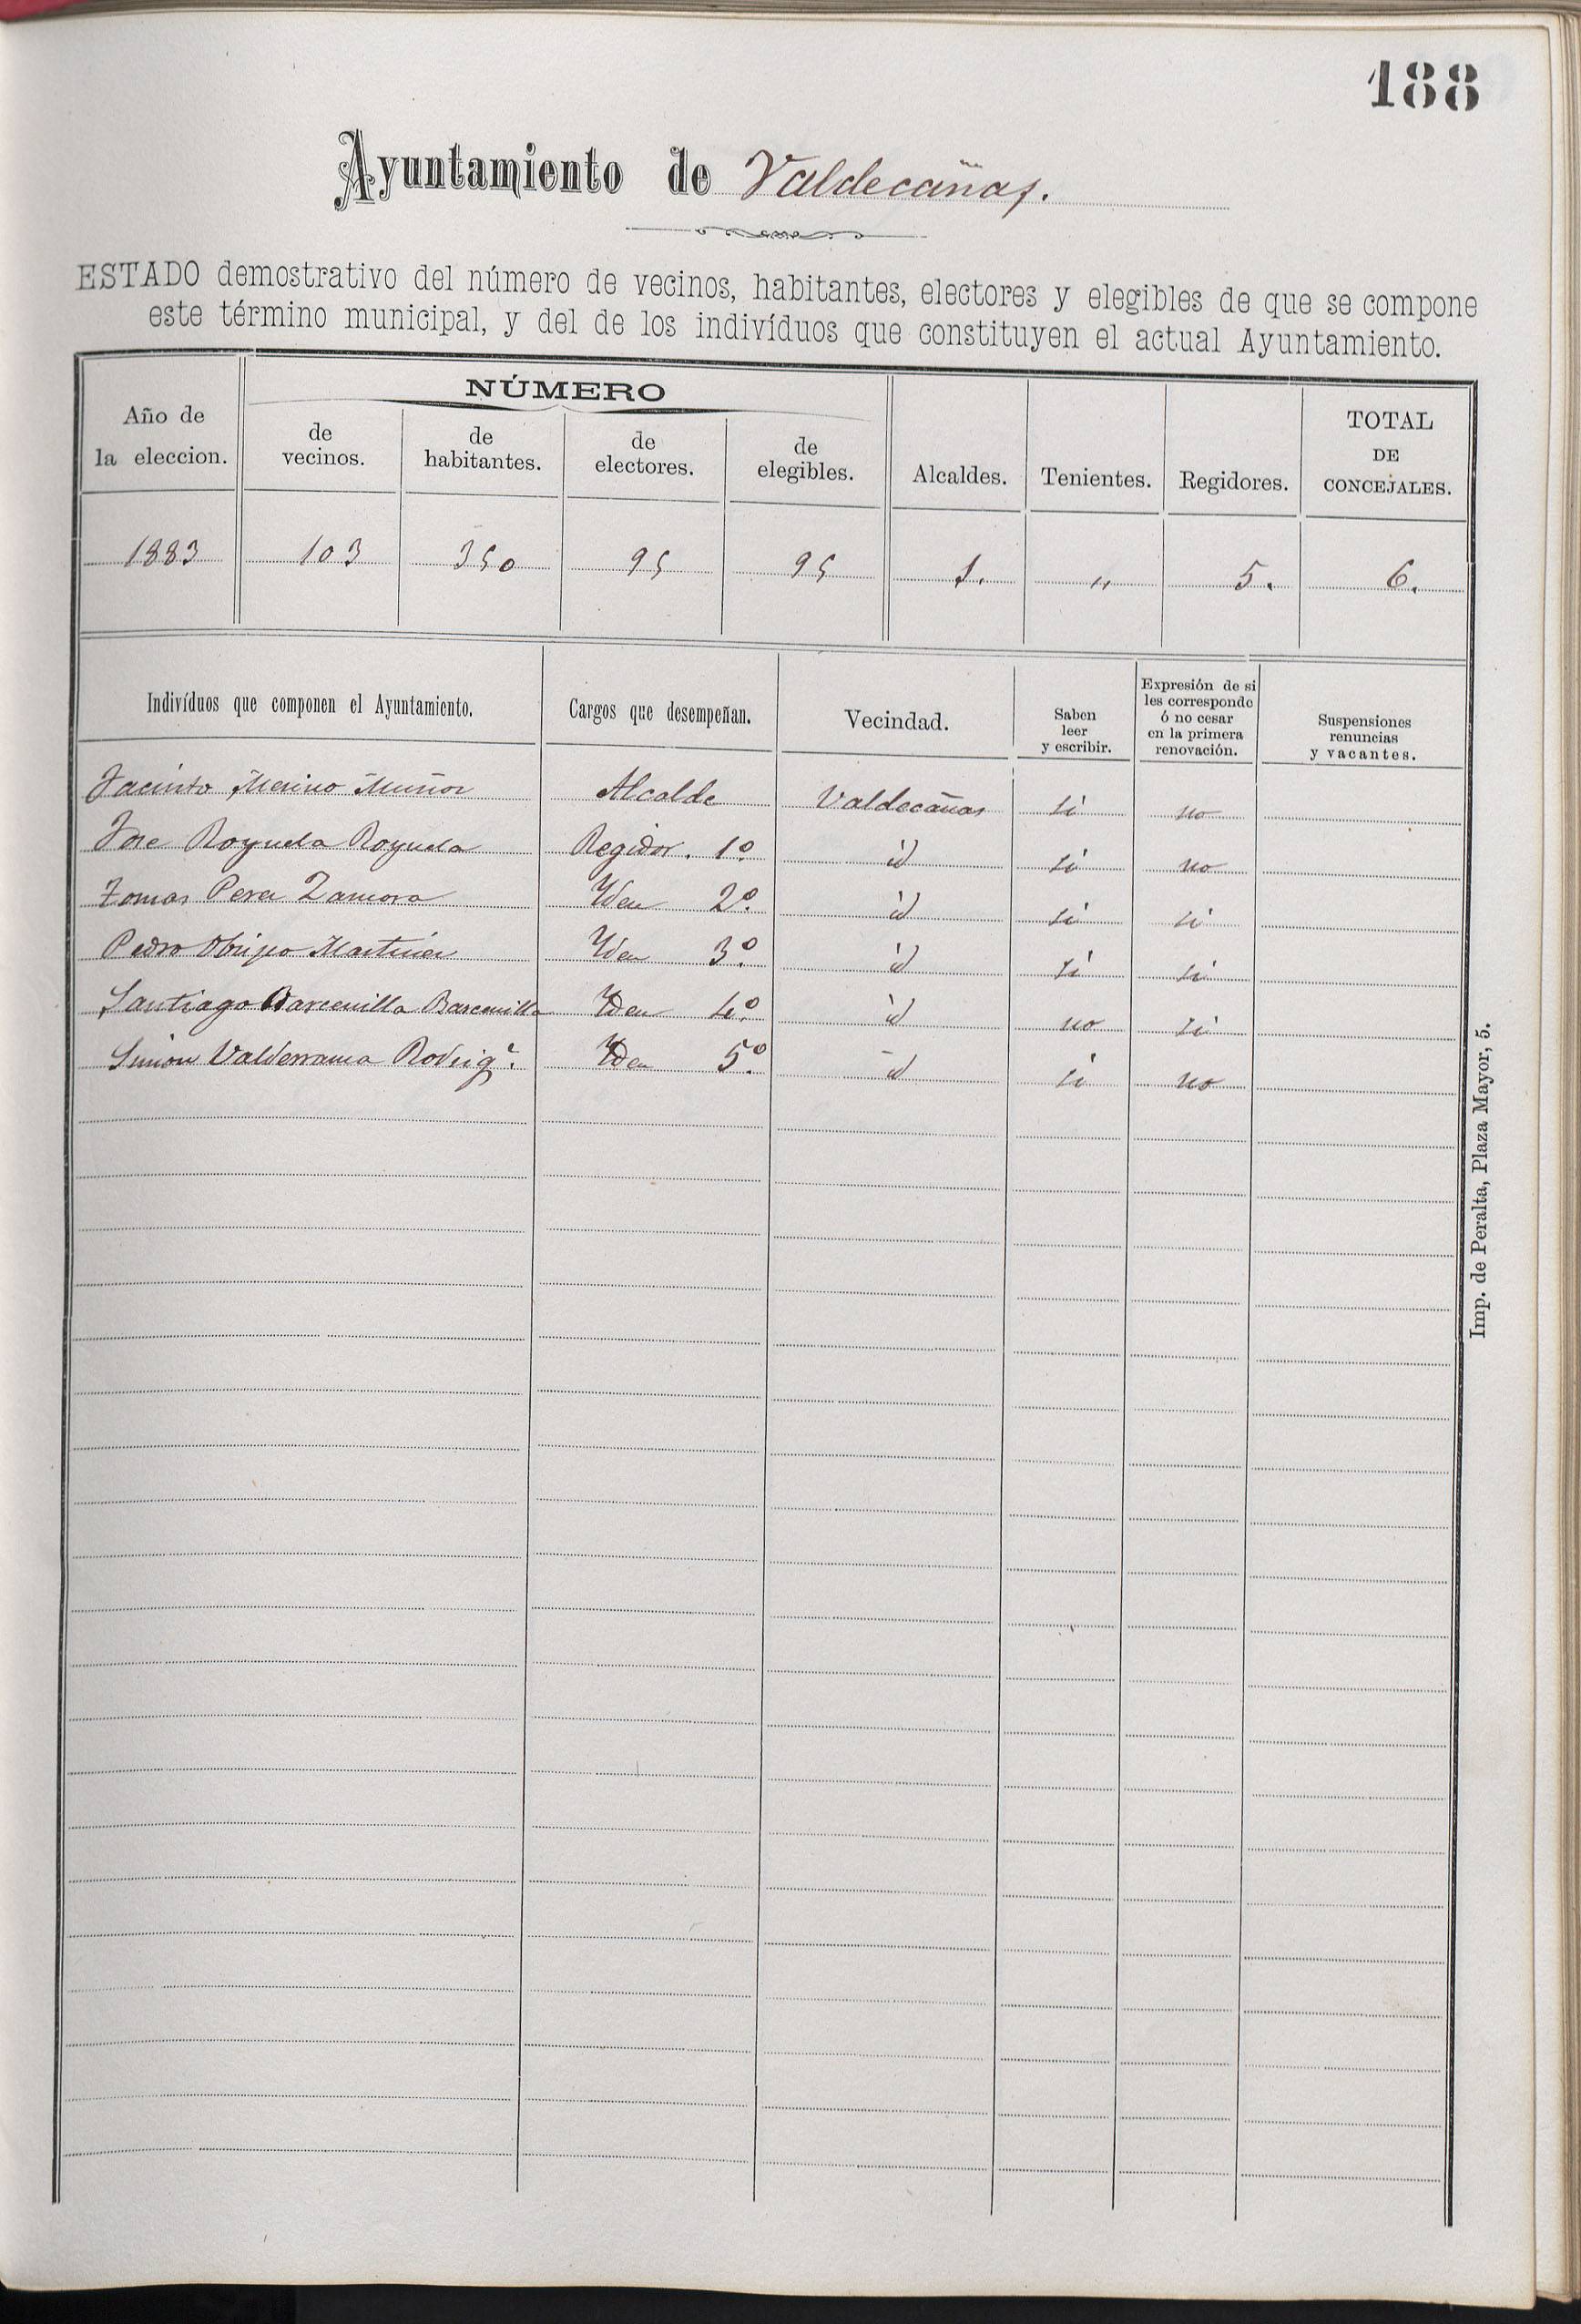 188
Ayuntamiento de Valdecañas.
ESTADO demostrativo del número de vecinos, habitantes, electores y elegibles de que se compone
este término municipal, y del de los indivíduos que constituyen el actual Ayuntamiento.
Año de la eleccion. NÚMERO de vecinos. de habitantes. de electores. de elegibles. Alcaldes. Tenientes. Regidores. TOTAL DE CONCEJALES.
1883 103 350 95 95 1. " 5. 6.
Indivíduos que componen el Ayuntamiento. Cargos que desempeñan. Vecindad. Saben leer y escribir. Expresión de si les corresponde ó no cesar en la primera renovación. Suspensiones renuncias y vacantes.
Jacinto Merino Muñoz Alcalde Valdecañas si no
Jose Royuela Royuela Regidor. 1º id si no
Tomas Perez Zamora Yden 2º id si si
Pedro Obispo Martinez Yden 3º id si si
Santiago Barcenilla Barcenilla Yden 4º id no si
Simon Valderrama Rodrigz. Yden 5º id si no
Imp. de Peralta, Plaza Mayor, 5.